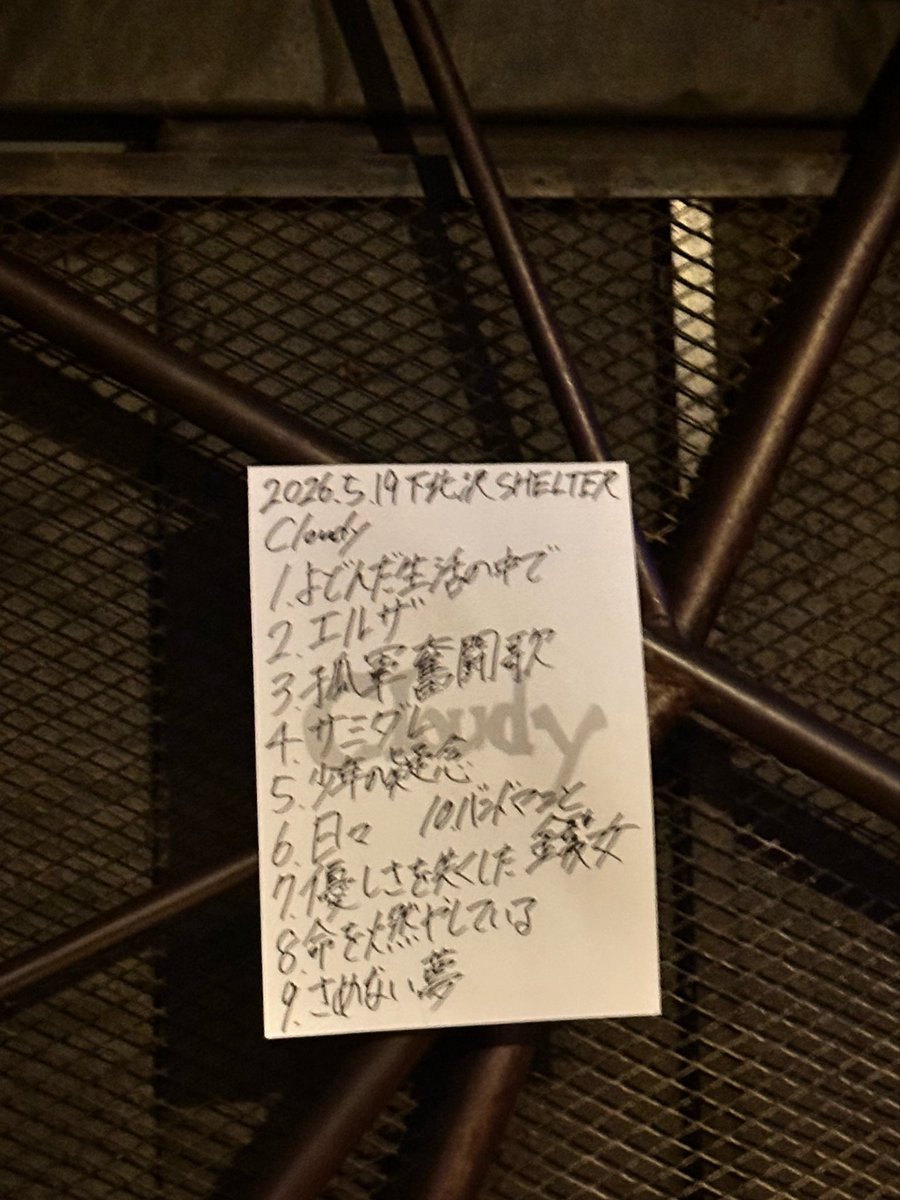 2026.5.19 下北沢 SHELTER
Cloudy
1. よどんだ生活の中で
2. エルザ
3. 孤軍奮闘歌
4. サミダレ
5. 少年の疑念
6. 日々
7. 優しさを失くした
8. 命を燃やしている
9. さめない夢
10. バンドマンと
女
Cloudy